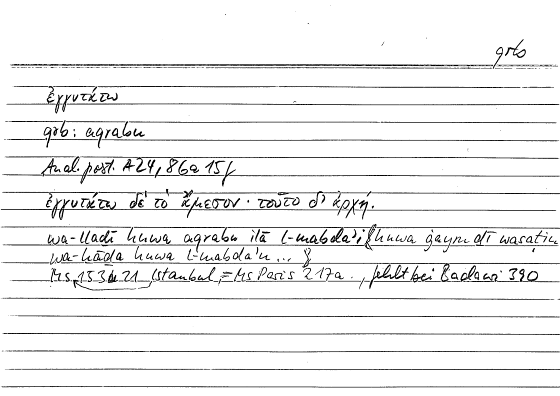 qrb
ἐγγυτάτω
qrb: aqrabu
Anal. post. A 24, 86a 15f
ἐγγυτάτω δὲ τὸ ἄμεσον· τοῦτο δ' ἀρχή.
wa-lladī huwa aqrabu ilā l-mabda'i huwa ġayru ḏī wasaṭin
wa-hāḏa huwa l-mabda'u ...
Ms. 153a 21 Istanbul, = Ms Paris 217a., fehlt bei Badawi 390